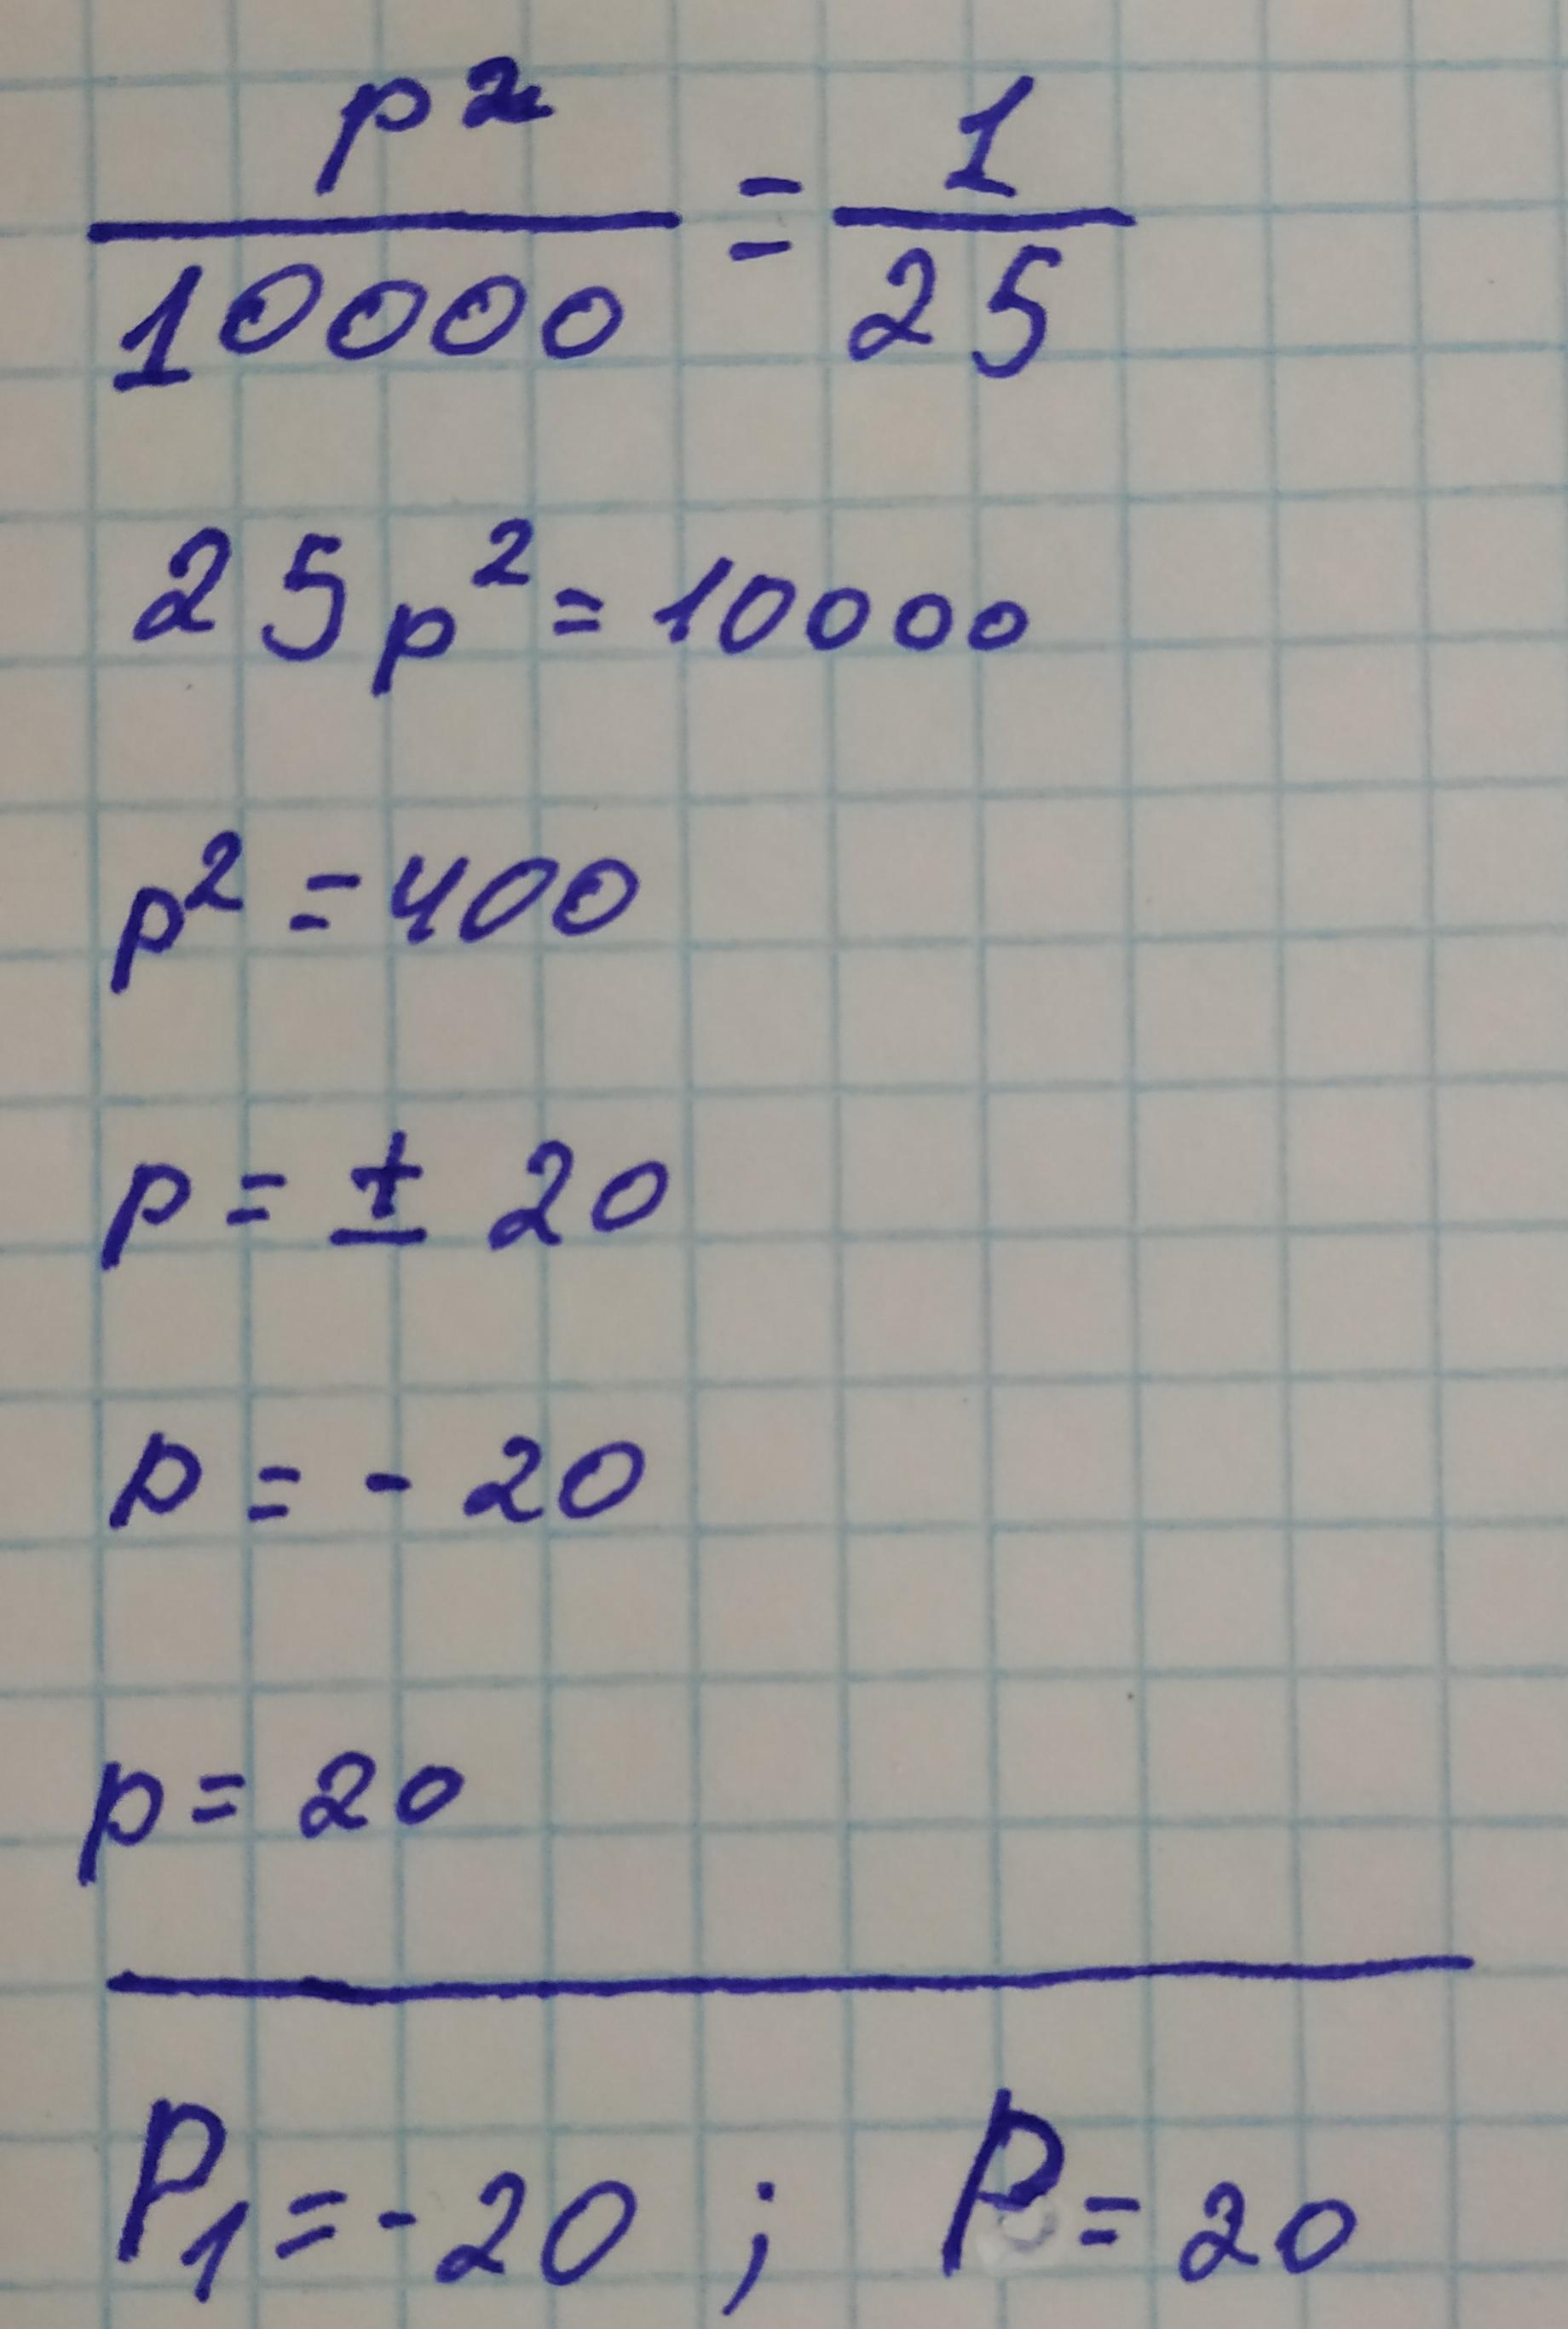 p²/10000 = 1/25
25p² = 10000
p² = 400
p = ± 20
p = - 20
p = 20
P₁ = - 20 ; P = 20